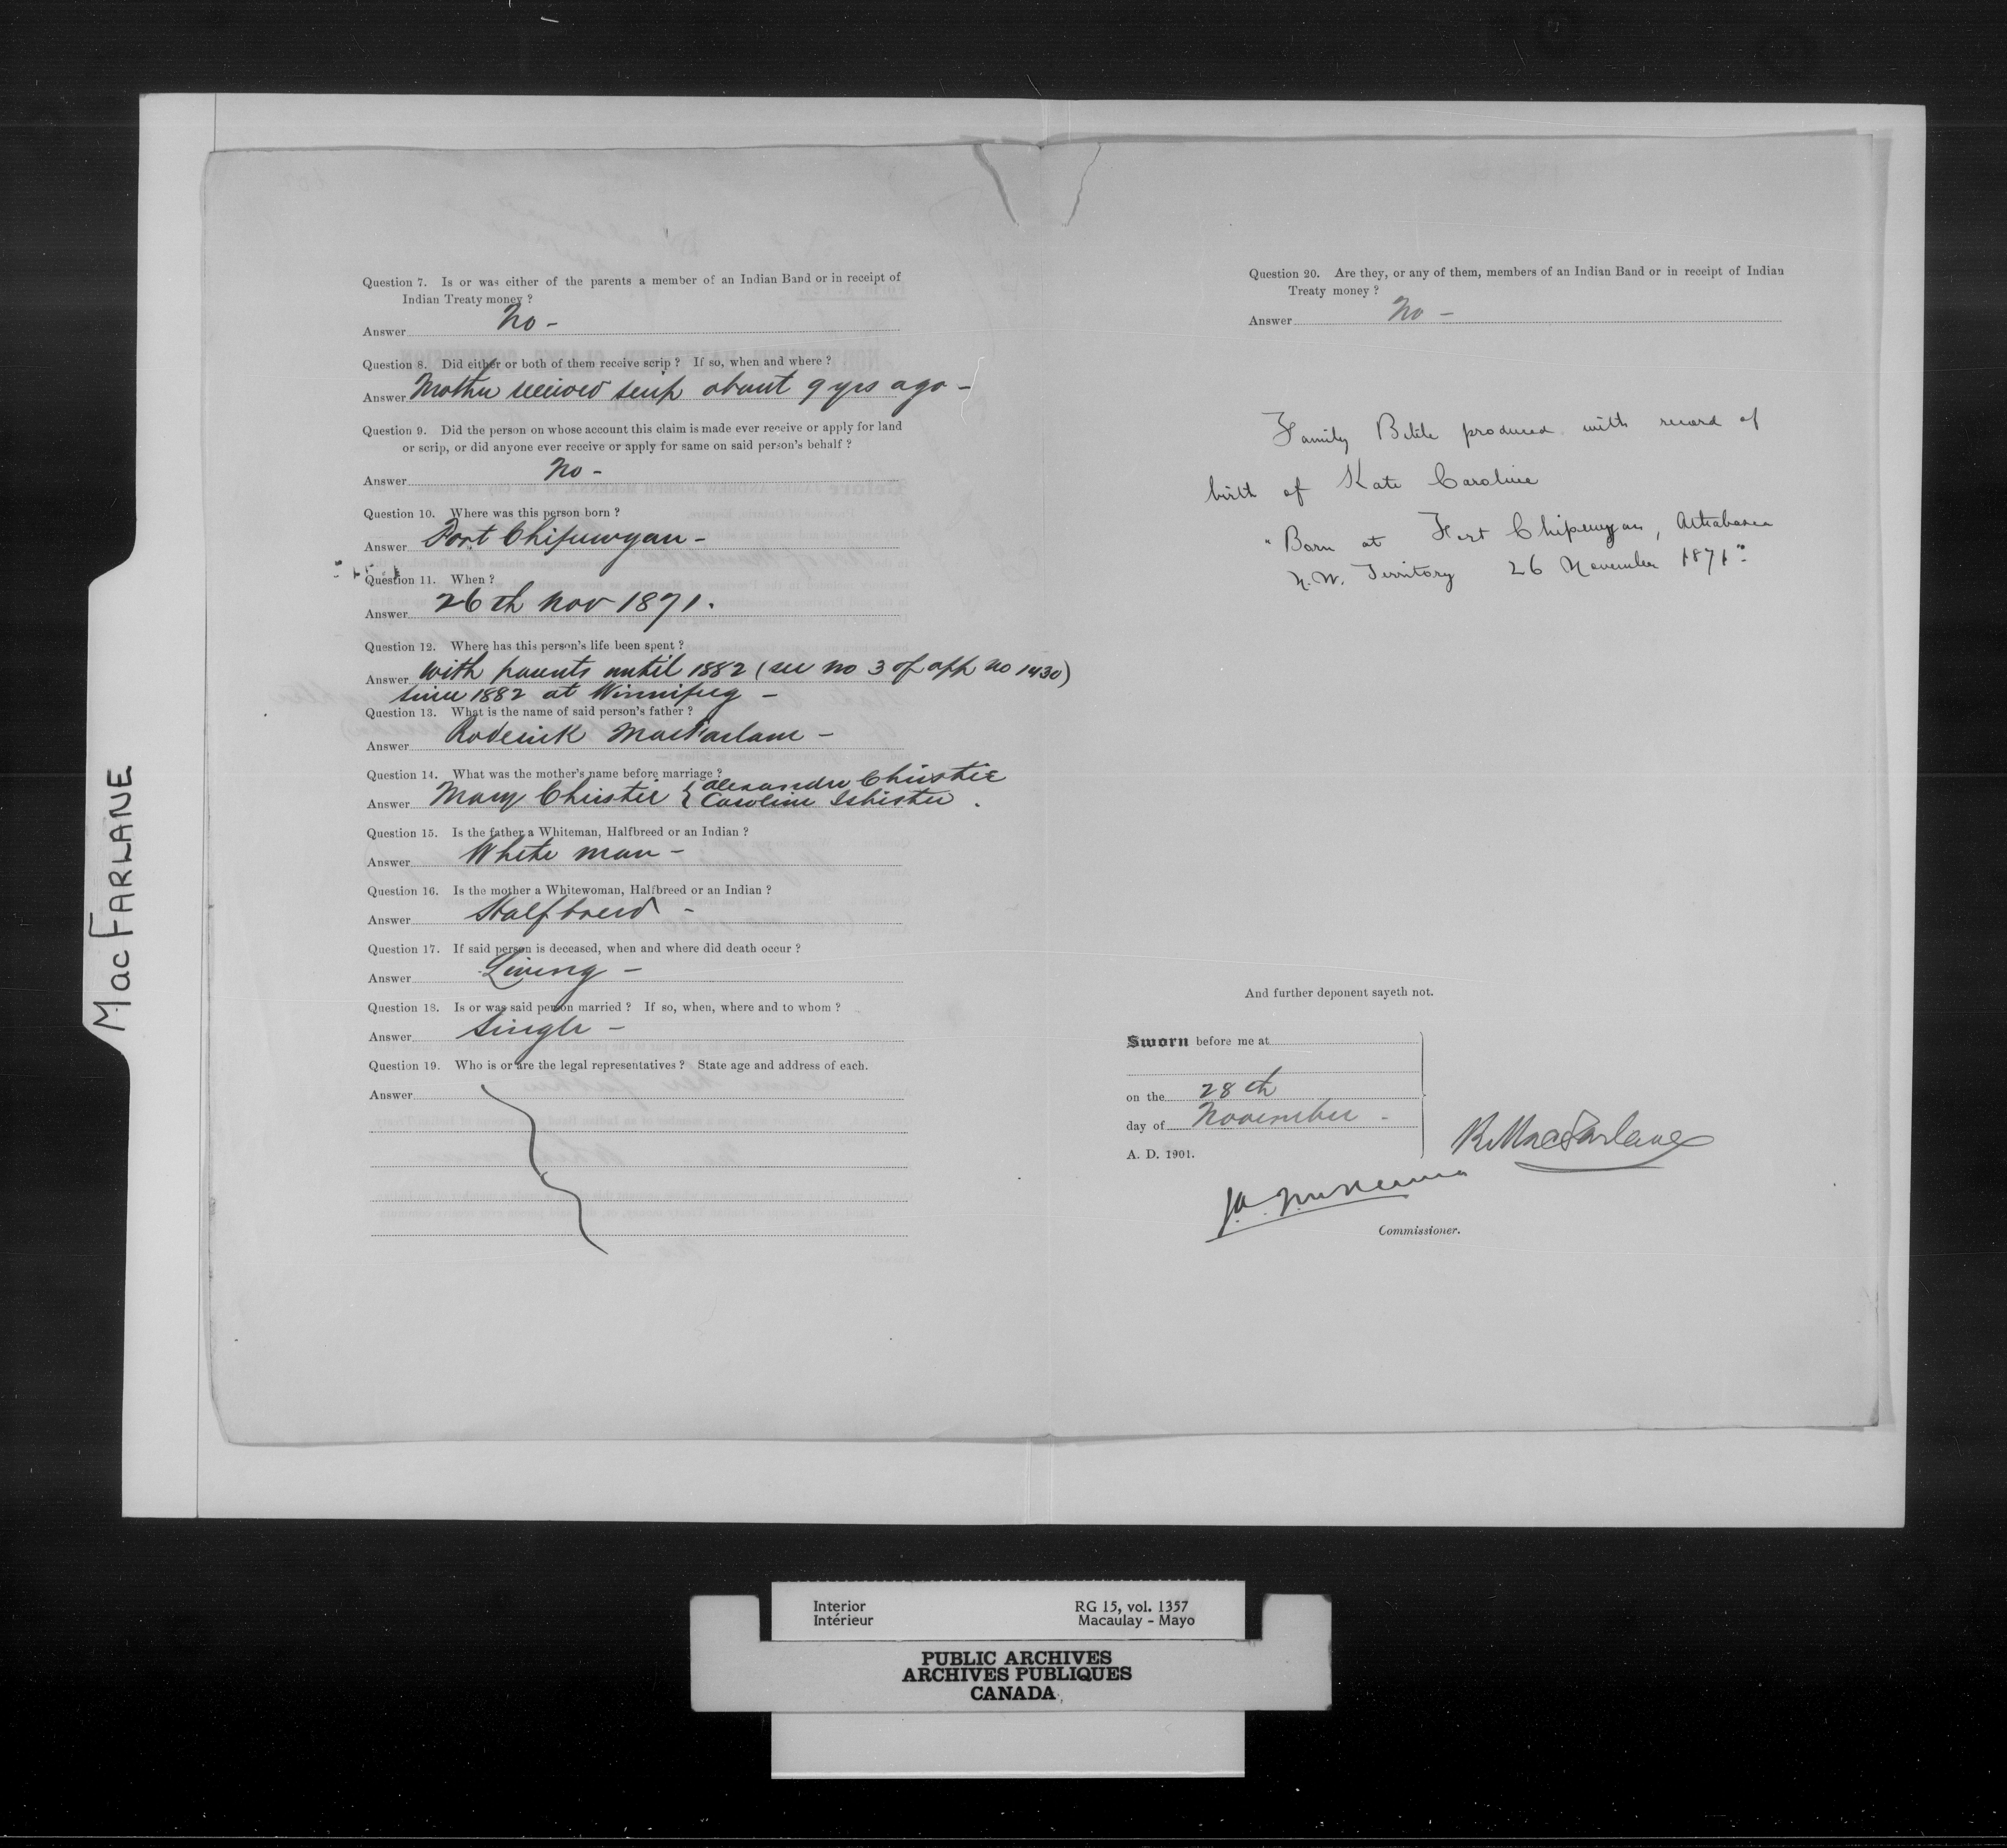 MacFARLANE
Question 7. Is or was either of the parents a member of an Indian Band or in receipt of
Indian Treaty money ?
Answer No -
Question 8. Did either or both of them receive scrip ? If so, when and where ?
Answer Mother received scrip about 9 yrs ago -
Question 9. Did the person on whose account this claim is made ever receive or apply for land
or scrip, or did anyone ever receive or apply for same on said person's behalf ?
Answer No -
Question 10. Where was this person born ?
Answer Fort Chipewyan -
Question 11. When ?
Answer 26th Nov 1871.
Question 12. Where has this person's life been spent ?
Answer With parents until 1882 (see no 3 of app no 1430)
since 1882 at Winnipeg -
Question 13. What is the name of said person's father ?
Answer Roderick MacFarlane -
Question 14. What was the mother's name before marriage ?
Answer Mary Christie { Alexander Christie
Caroline Isbister .
Question 15. Is the father a Whiteman, Halfbreed or an Indian ?
Answer White man -
Question 16. Is the mother a Whitewoman, Halfbreed or an Indian ?
Answer Halfbreed -
Question 17. If said person is deceased, when and where did death occur ?
Answer Living -
Question 18. Is or was said person married ? If so, when, where and to whom ?
Answer Single -
Question 19. Who is or are the legal representatives ? State age and address of each.
Answer
Question 20. Are they, or any of them, members of an Indian Band or in receipt of Indian
Treaty money ?
Answer No -
Family Bible produced with record of
birth of Kate Caroline
"Born at Fort Chipewyan, Athabasca
N.W. Territory 26 November 1871"
And further deponent sayeth not.
Sworn before me at
on the 28th
day of November -
A. D. 1901.
R MacFarlane
J.A. McKenna
Commissioner.
Interior RG 15, vol. 1357
Intérieur Macaulay - Mayo
PUBLIC ARCHIVES
ARCHIVES PUBLIQUES
CANADA